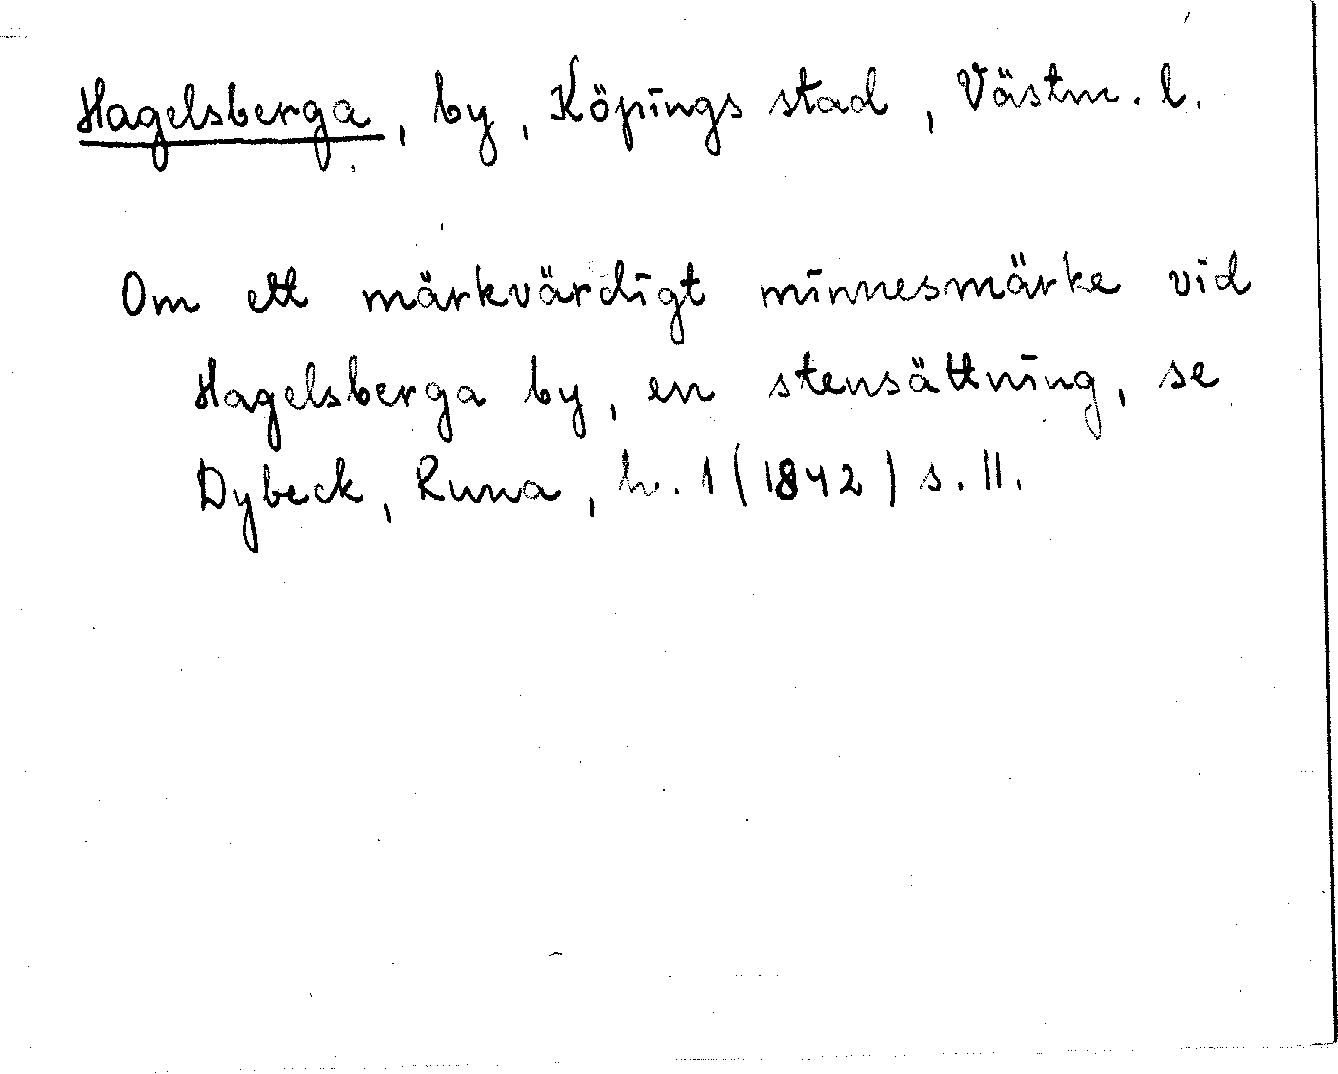 Hagelsberga, by, Köpings stad, Västm. l.
Om ett märkvärdigt minnesmärke vid
Hagelsberga by, en stensättning, se
Dybeck, Runa, h. 1 (1842) s. 11.